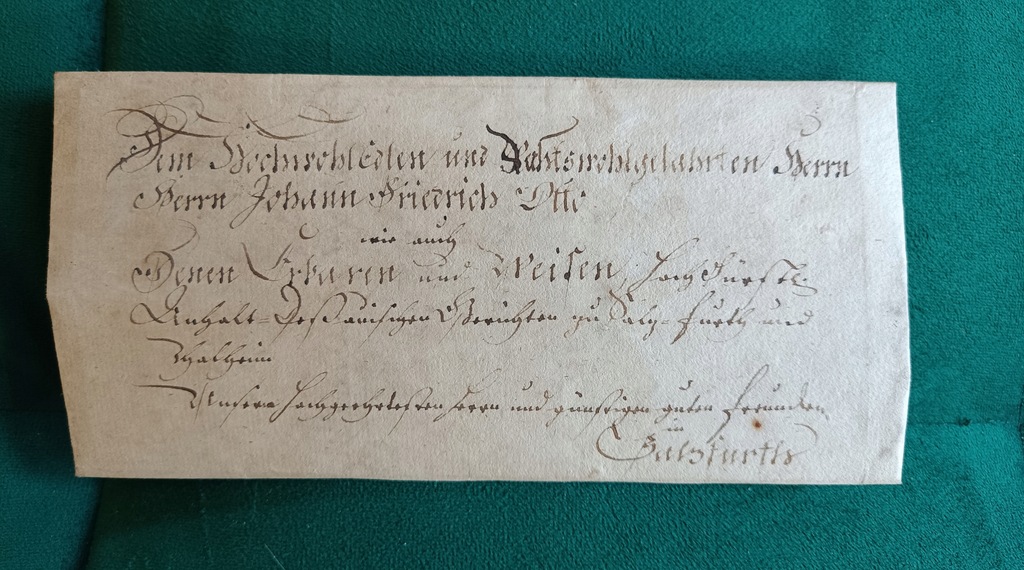 Dem Hochwohledlen und Rahtswohlgelahrten Herrn
Herrn Johann Friedrich Otto
wie auch
Denen Erbaren und Weisen, Hoch Fürstl.
Anhalt-Deßauischen Gerichten zu Salz-furth und
Thalheim
Unsern Hochgeehrtesten Herrn und günstigen guten freunden
in
Salzfurth